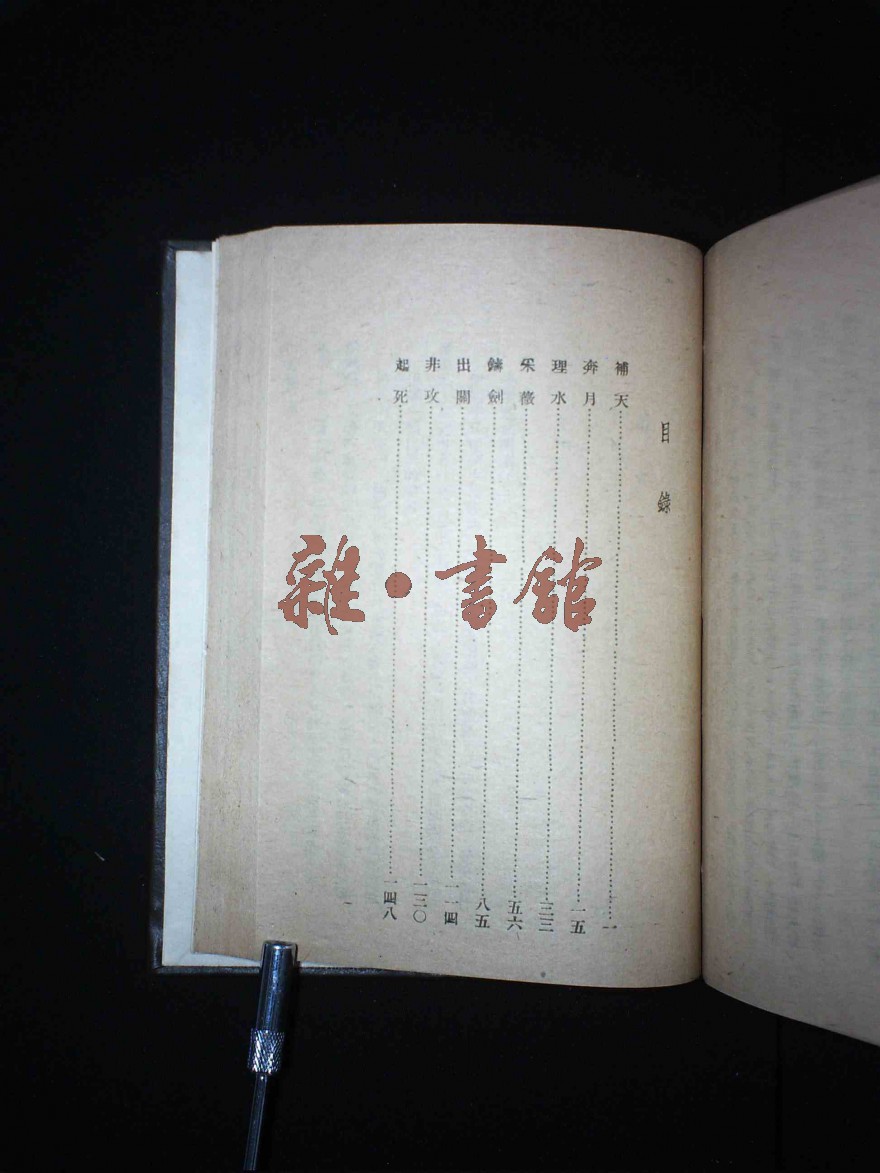 目錄
補天⋯⋯⋯⋯⋯⋯⋯⋯一
奔月⋯⋯⋯⋯⋯⋯⋯⋯一五
理水⋯⋯⋯⋯⋯⋯⋯⋯三三
采薇⋯⋯⋯⋯⋯⋯⋯⋯五六
鑄劍⋯⋯⋯⋯⋯⋯⋯⋯八五
出關⋯⋯⋯⋯⋯⋯⋯⋯一一四
非攻⋯⋯⋯⋯⋯⋯⋯⋯一三〇
起死⋯⋯⋯⋯⋯⋯⋯⋯一四八
雜•書館